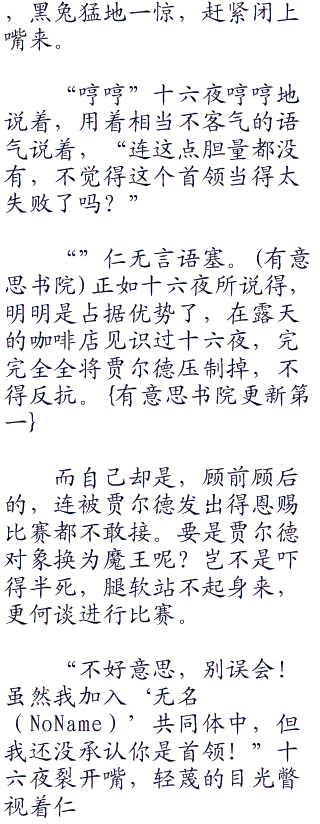 ，黑兔猛地一惊，赶紧闭上
嘴来。
“哼哼”十六夜哼哼地
说着，用着相当不客气的语
气说着，“连这点胆量都没
有，不觉得这个首领当得太
失败了吗？”
“”仁无言语塞。(有意
思书院)正如十六夜所说得，
明明是占据优势了，在露天
的咖啡店见识过十六夜，完
完全全将贾尔德压制掉，不
得反抗。{有意思书院更新第
一}
而自己却是，顾前顾后
的，连被贾尔德发出得恩赐
比赛都不敢接。要是贾尔德
对象换为魔王呢？岂不是吓
得半死，腿软站不起身来，
更何谈进行比赛。
“不好意思，别误会！
虽然我加入‘无名
（NoName）’共同体中，但
我还没承认你是首领！”十
六夜裂开嘴，轻蔑的目光瞥
视着仁